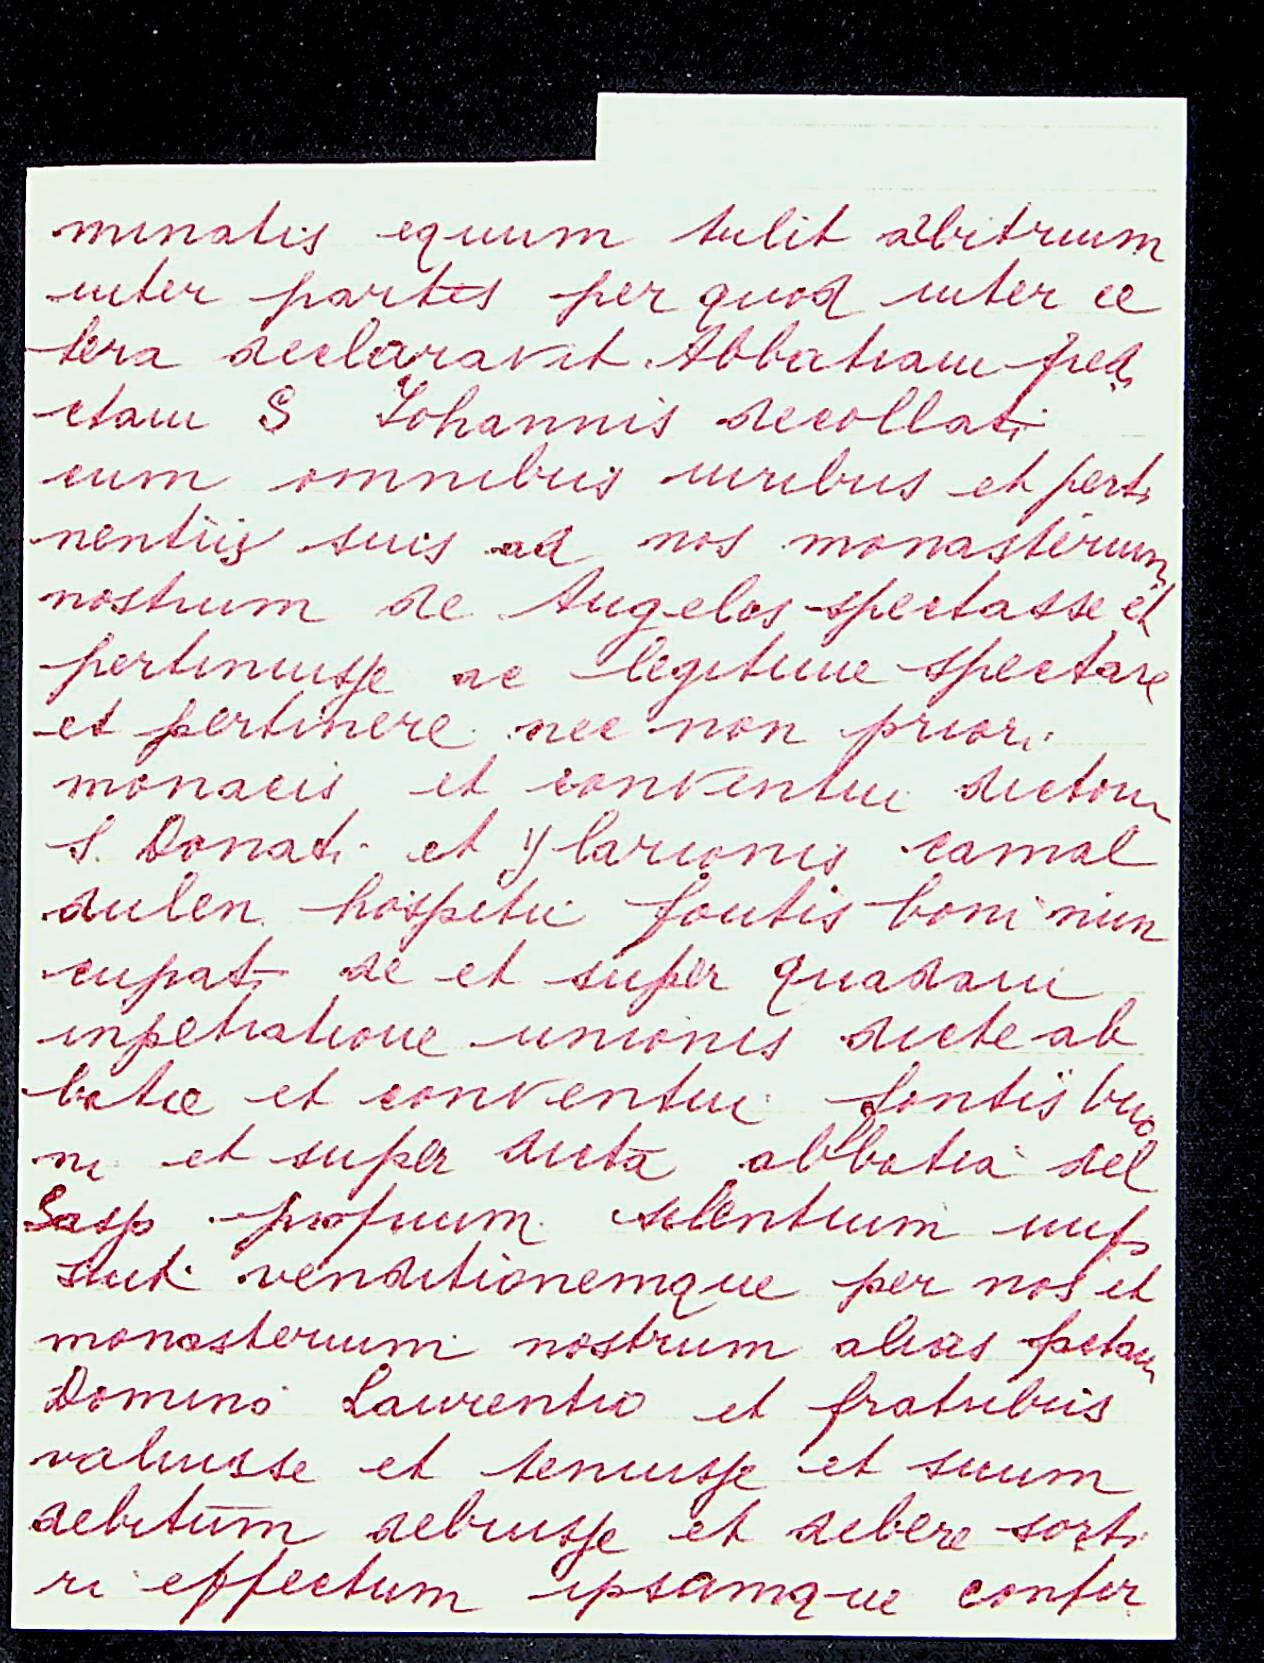 minatis equum tulit arbitrium
inter partes per quod inter ce
tera declaravit Abbatiam pred
ctam S Iohannis decollati
cum omnibus iuribus et perti
nentiis suis ad nos monasterium
nostrum de Angelos spectasse et
pertinuisse ac legitime spectare
et pertinere nec non priori
monacis et conventui dictorum
S. Donati et Ylarionis camal
dulen hospitii fontis boni nun
cupati de et super quadam
inpetratione unionis dicte ab
batie et conventui fontis buo
ni et super dicta abbatia del
Sasso silentium
venditionemque per nos et
monasterium nostrum alias
Domino Laurentio et fratribus
valuisse et tenuisse et suum
debitum debuisse et debere sorti
ri effectum ipsamque confir